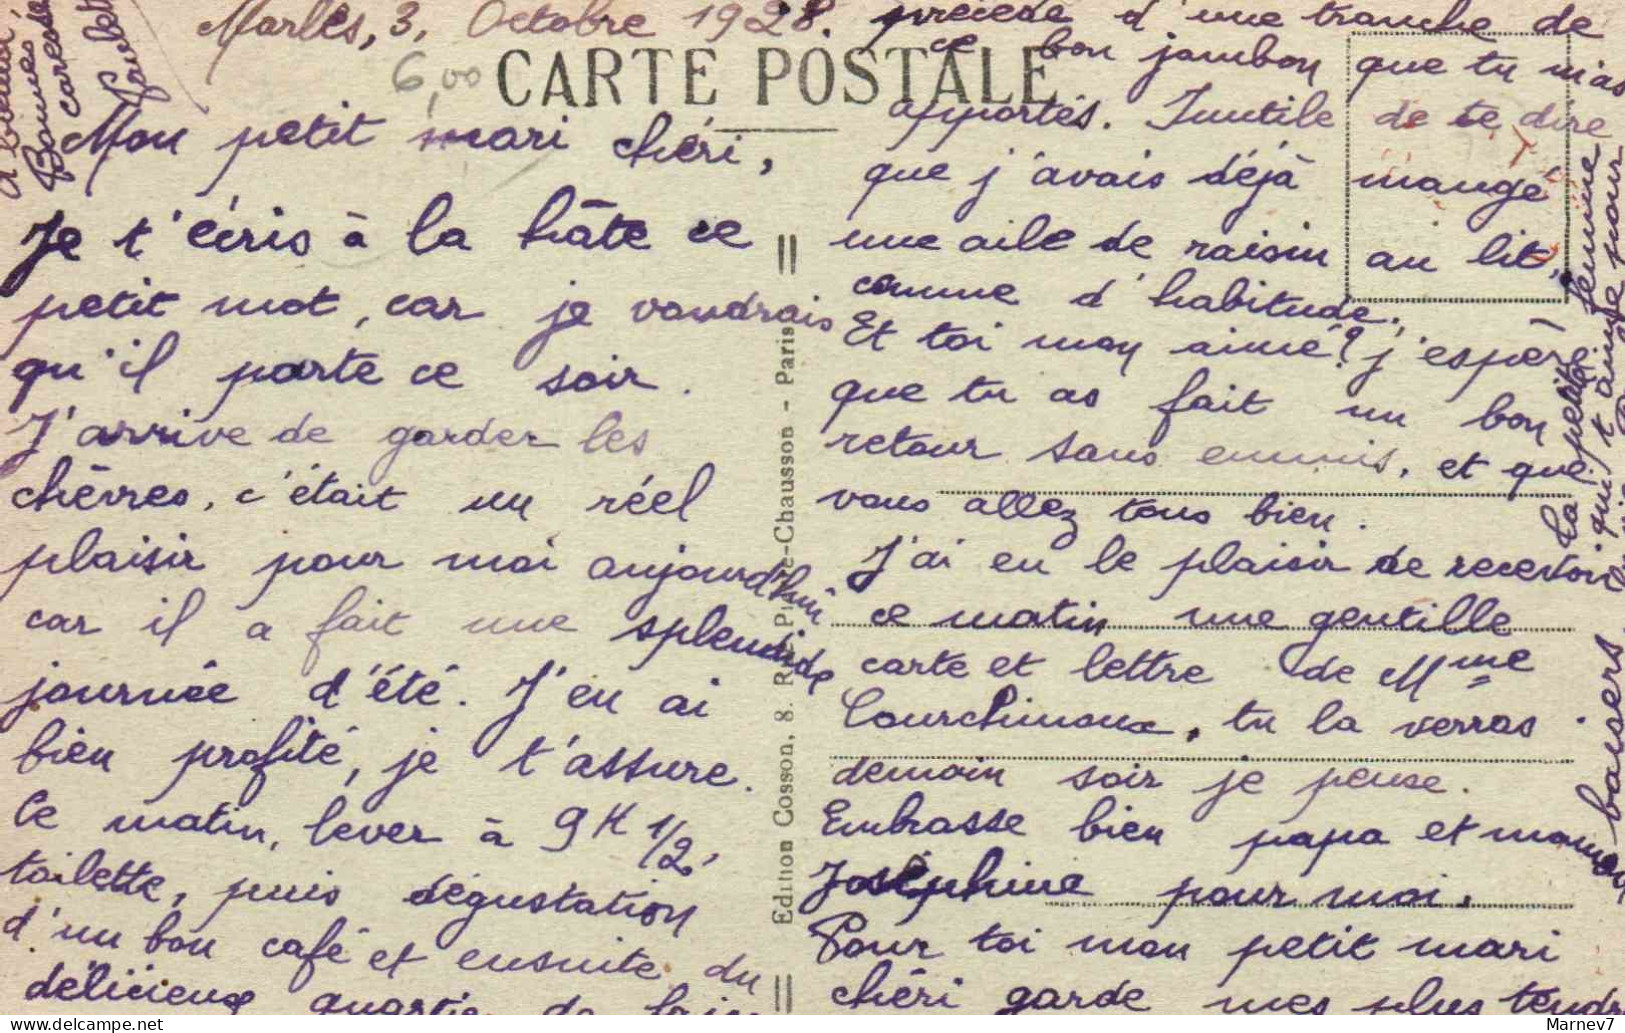 Marlès, 3, Octobre 1928.
6,00
CARTE POSTALE
Mon petit mari chéri,
Je t'écris à la hâte ce
petit mot, car je voudrais
qu'il parte ce soir.
J'arrive de garder les
chèvres, c'était un réel
plaisir pour moi aujourd'hui
car il a fait une splendide
journée d'été. J'en ai
bien profité, je t'assure.
Ce matin, lever à 9H 1/2,
toilette, puis dégustation
d'un bon café et ensuite du
délicieux quartier de
précédé d'une tranche de
ce bon jambon que tu m'as
apportés. Inutile de te dire
que j'avais déjà mangé
une aile de raisin au lit,
comme d'habitude.
Et toi mon aimé? j'espère
que tu as fait un bon
retour sans ennuis, et que
vous allez tous bien.
J'ai eu le plaisir de recevoir
ce matin une gentille
carte et lettre de Mme
Courchinoux, tu la verras
demain soir je pense.
Embrasse bien papa et maman
Joséphine pour moi.
Pour toi mon petit mari
chéri garde mes plus tendres
baisers.
La petite femme
qui t'aime pour
à bientôt
Bonnes
caresses
Paulette
Edition Cosson, 8. R. Pierre-Chausson - Paris
Marnev7